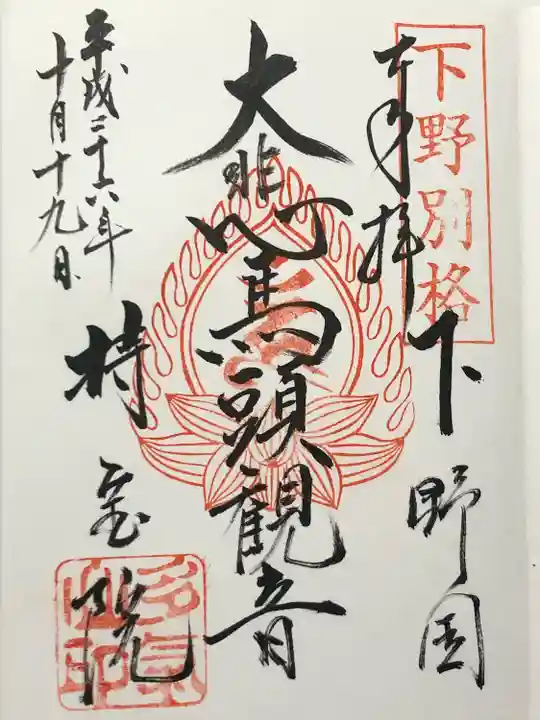 下野別格
奉拝
下野国
大悲心馬頭観音
平成二十六年
十月十九日
持宝院
多気山印